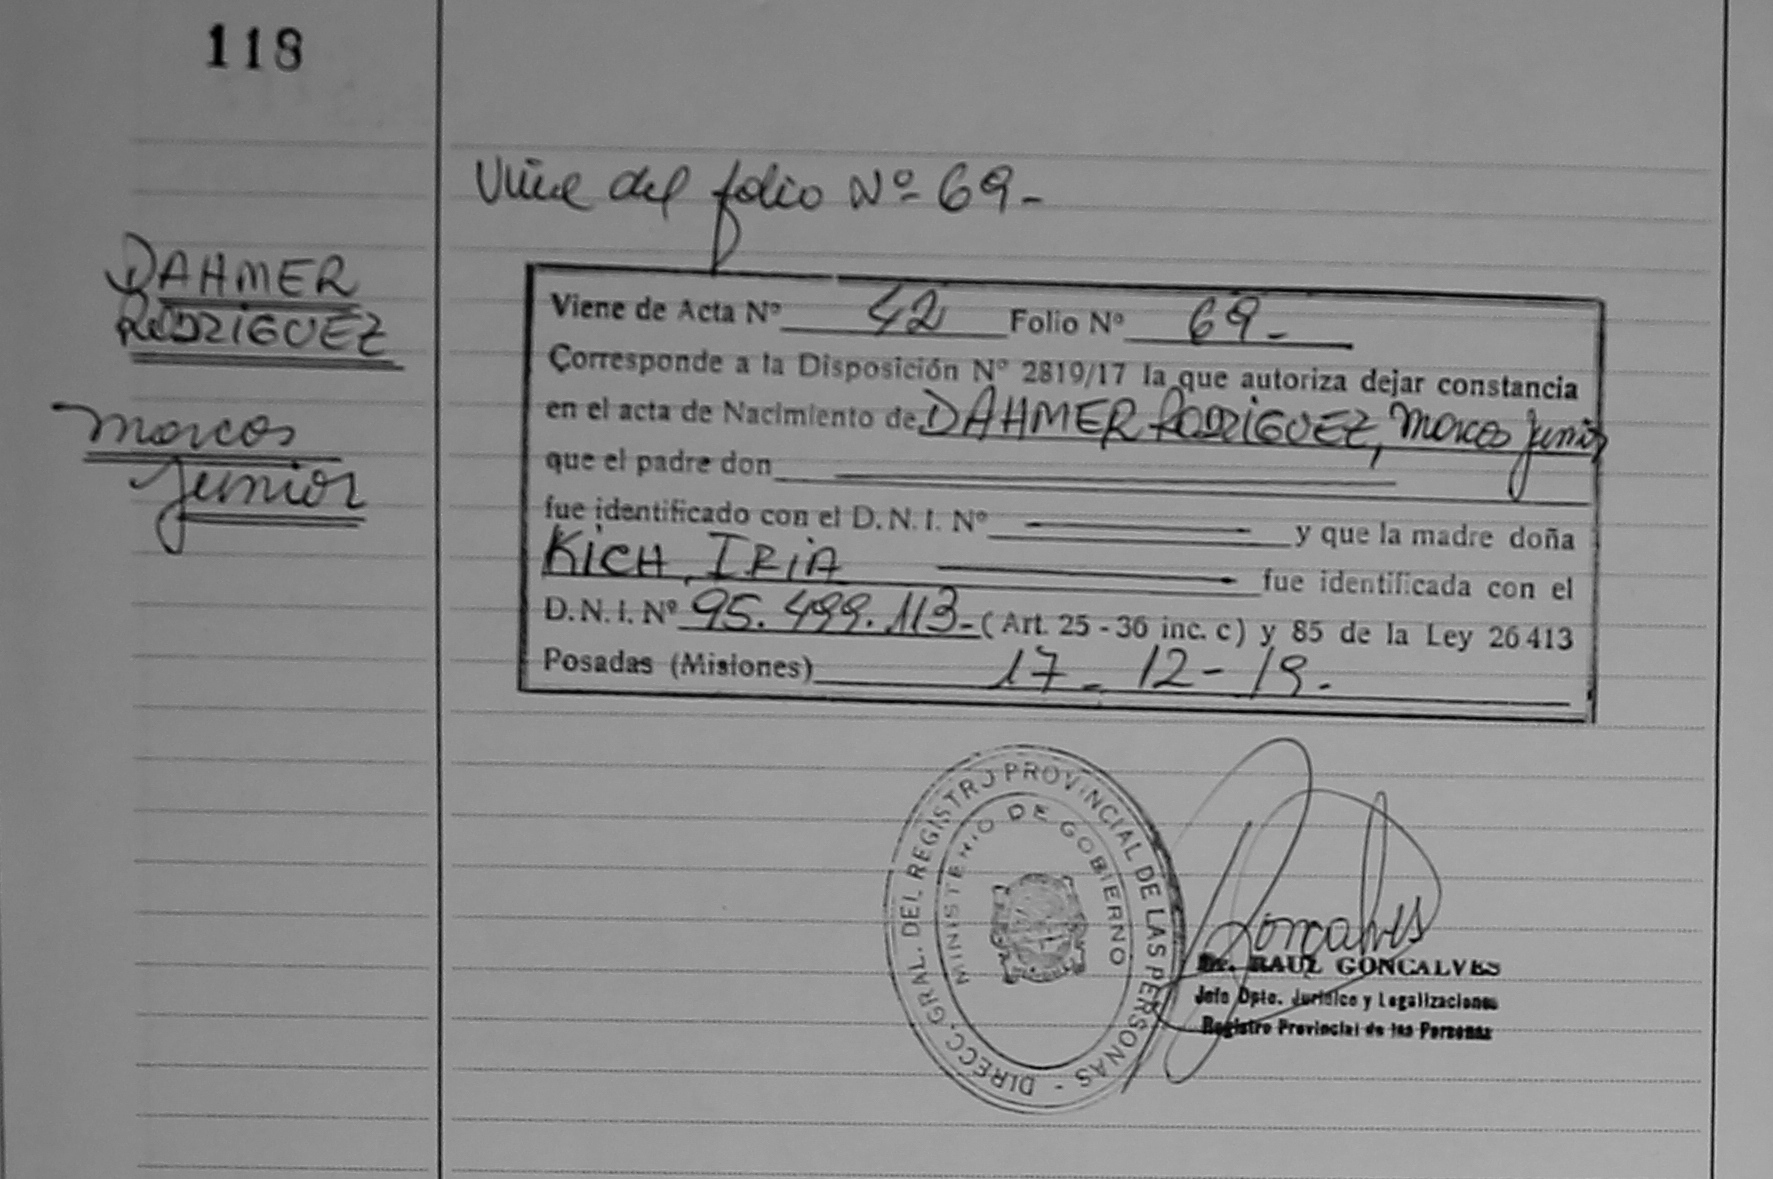 118
Viene del folio Nº 69-
DAHMER
RODRIGUEZ
Marcos
Junior
Viene de Acta Nº 42 Folio Nº 69-
Corresponde a la Disposición Nº 2819/17 la que autoriza dejar constancia
en el acta de Nacimiento de DAHMER RODRIGUEZ, Marcos Junior
que el padre don
fue identificado con el D.N.I. Nº y que la madre doña
KICH, IRIA fue identificada con el
D.N.I. Nº 95.499.113- (Art. 25 - 36 inc. c) y 85 de la Ley 26413
Posadas (Misiones) 17-12-19.
DIRECC. GRAL. DEL REGISTRO PROVINCIAL DE LAS PERSONAS -
MINISTERIO DE GOBIERNO
Goncalves
Dr. RAUL GONCALVES
Jefe Dpto. Jurídico y Legalizaciones
Registro Provincial de las Personas